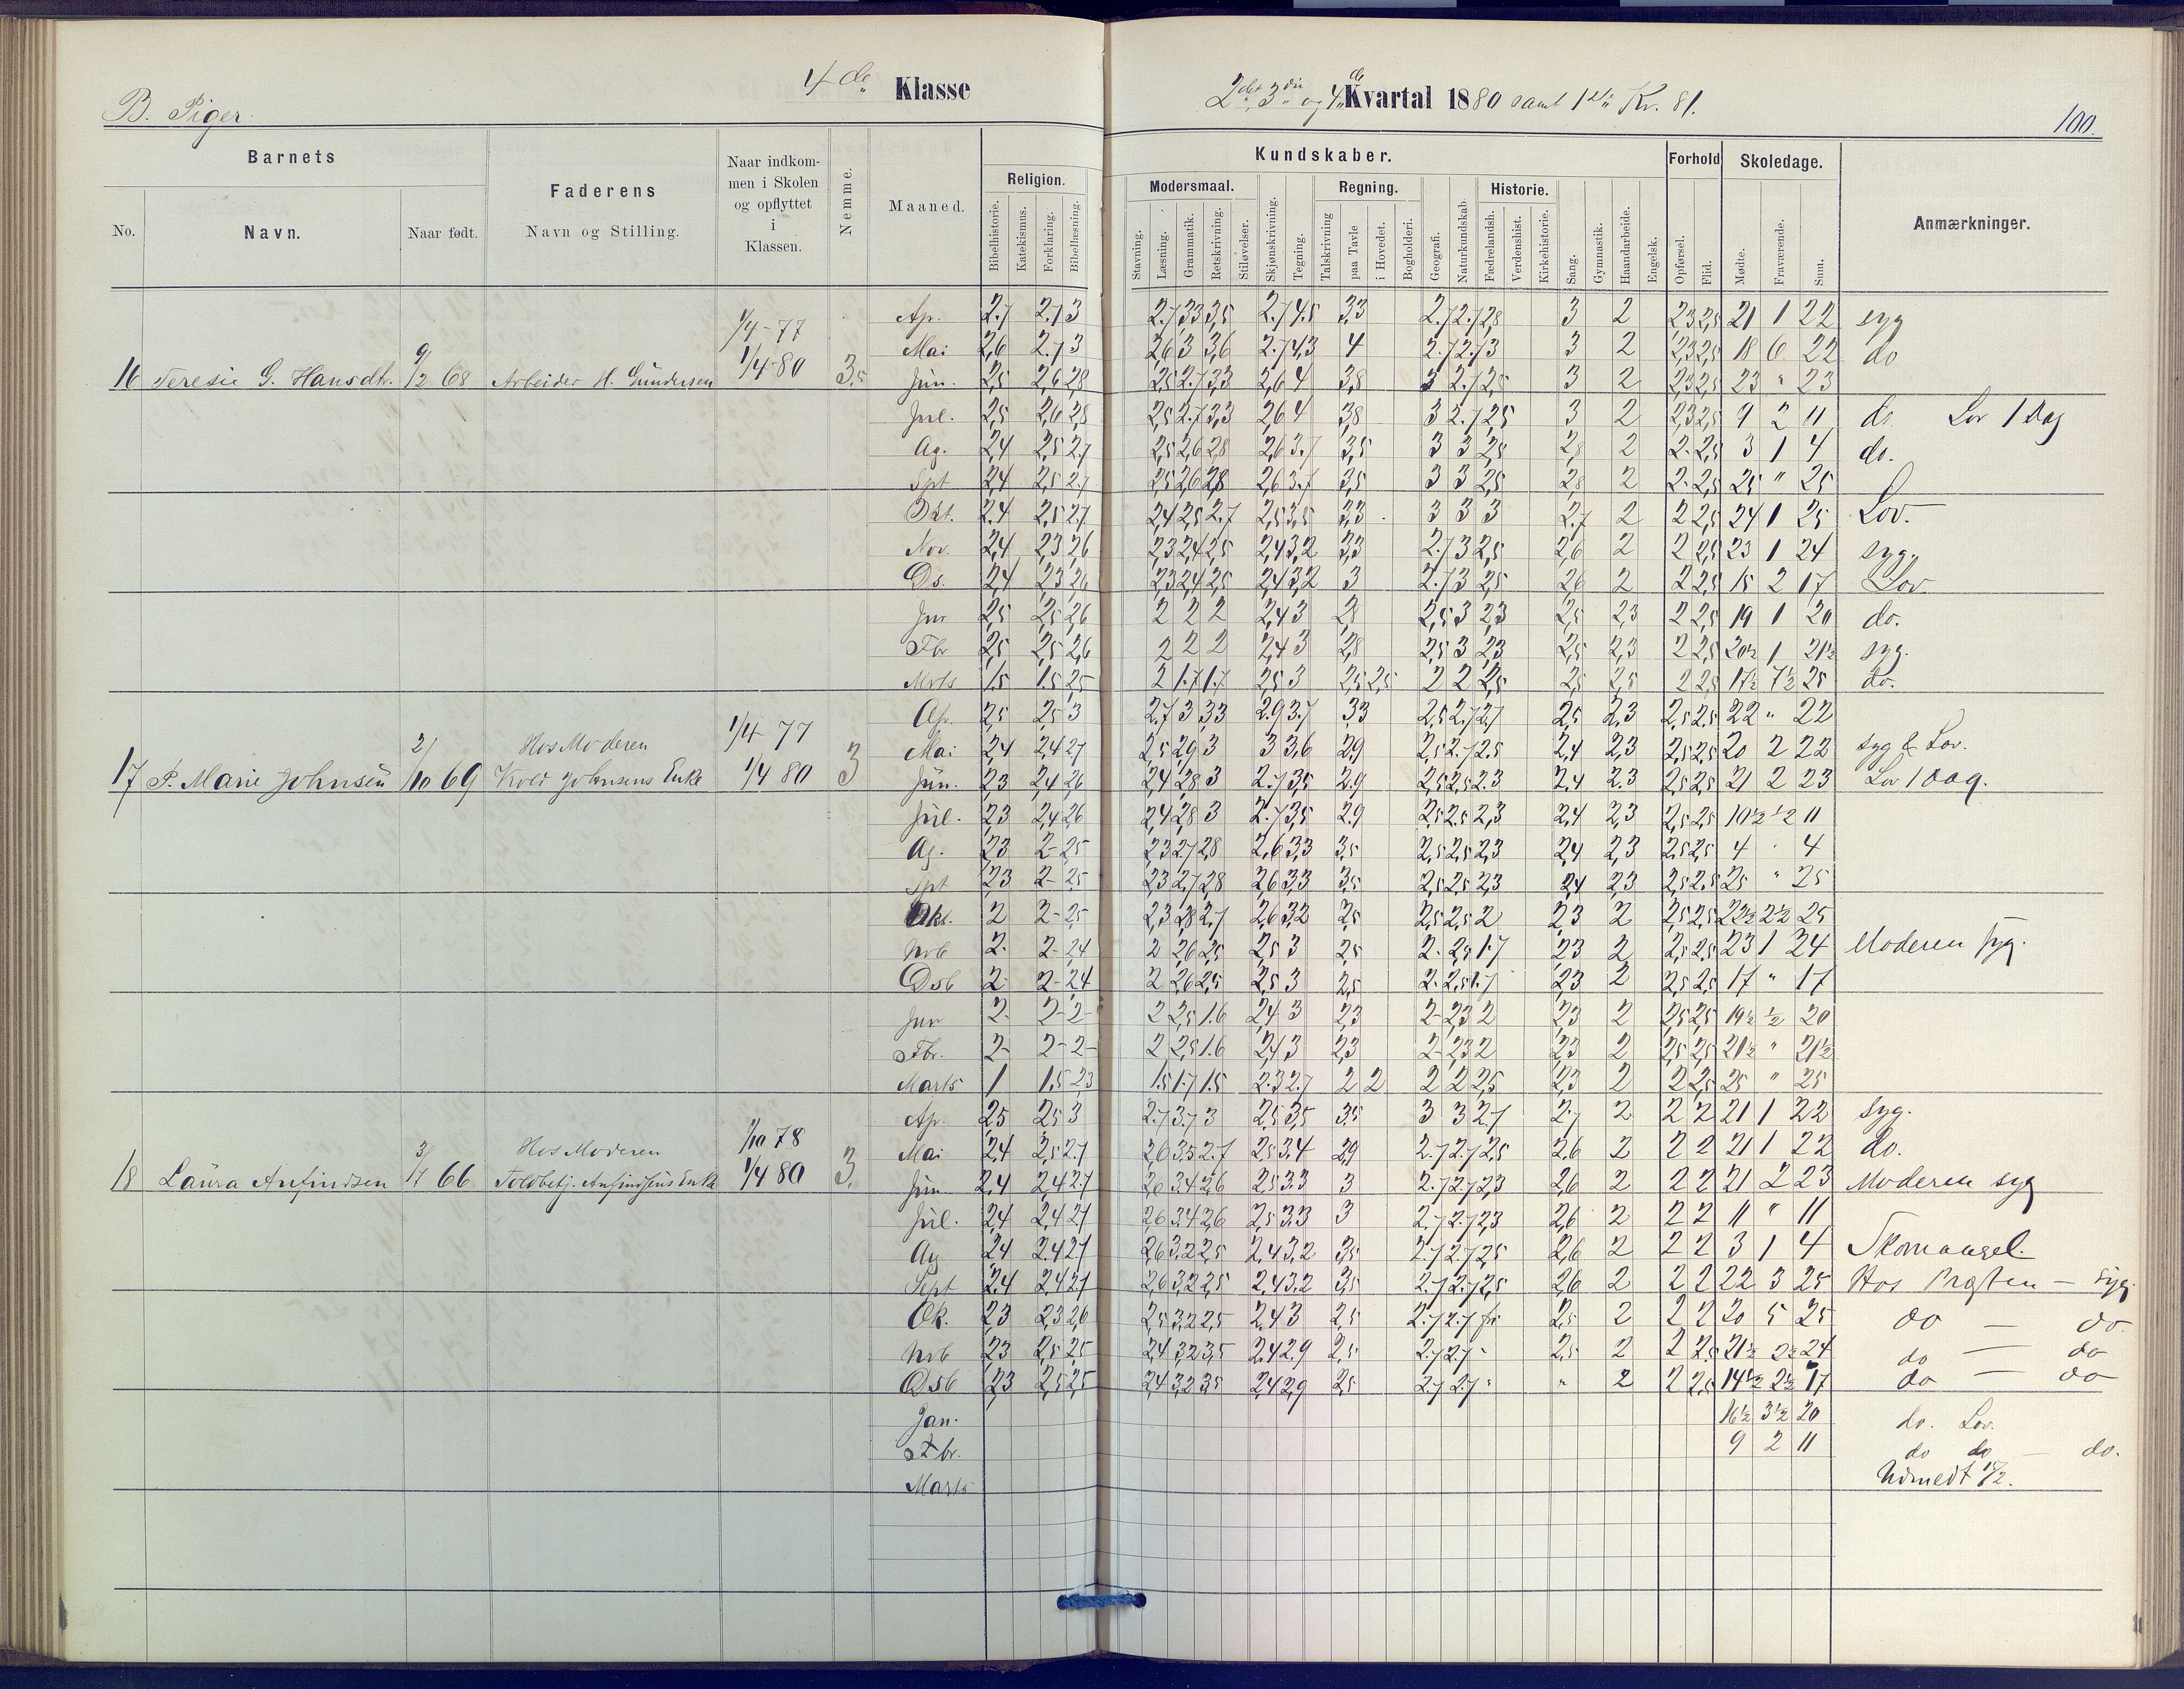 B. Piger.
4de Klasse
2det 3die og 4de Kvartal 1880 samt 1ste Kv. 81.
100.
Barnets
Faderens
Naar indkom-
men i Skolen
og opflyttet
i
Klassen.
Nemme.
Maaned.
Religion.
Kundskaber.
Modersmaal.
Regning.
Historie.
Forhold
Skoledage.
Anmærkninger.
No.
Navn.
Naar født.
Navn og Stilling.
Bibelhistorie.
Katekismus.
Forklaring.
Bibellæsning.
Stavning.
Læsning.
Grammatik.
Retskrivning.
Stiløvelser.
Skjønskrivning.
Tegning.
Talskrivning
paa Tavle
i Hovedet.
Bogholderi.
Geografi.
Naturkundskab
Fædrelandsh.
Verdenshist.
Kirkehistorie.
Sang.
Gymnastik.
Haandarbeide.
Engelsk.
Opførsel.
Flid.
Mødte.
Fraværende.
Sum.
1/4-77
1/4-80
16 Teresie G. Hansdtr. 9/2 68 Arbeider H. Gundersen 3,5
Ap. 2.7 2.7 3 2.7 3,3 3,5 2.7 4.5 3,3 2.7 2.7 2,8 3 2 2,3 2,5 21 1 22 syg
Mai 2,6 2.7 3 2,6 3 3,6 2.7 4,3 4 2.7 2.7 3 3 2 2,3 2,5 18 22 do
Jun. 2,5 2,6 2,8 2,5 2.7 3,3 2,6 4 3,8 3 2.7 2,5 3 2 2,3 2,5 23 " 23
Jul. 2,5 2,6 2,8 2,5 2.7 3,3 2,6 4 3,8 3 2.7 2,5 3 2 2,3 2,5 9 2 11 do Lov 1 Dag
Ag. 2,4 2,5 2.7 2,5 2,6 2,8 2,6 3.7 3,5 3 3 2,5 2,8 2 2- 2,5 3 1 4 do.
Spt 2,4 2,5 2.7 2,5 2,6 2,8 2,6 3.7 3,5 3 3 2,5 2,8 2 2- 2,5 25 " 25
Okt. 2,4 2,5 2,7 2,4 2,5 2.7 2,5 3,5 3,3 3 3 3 2.7 2 2 2,5 24 1 25 Lov.
Nov. 2,4 2,3 2,6 2,3 2,4 2,5 2,4 3,2 3,3 2.7 3 2,5 2,6 2 2 2,5 23 1 24 syg.
Ds. 2,4 2,3 2,6 2,3 2,4 2,5 2,4 3,2 3 2.7 3 2,5 2,6 2 2 2,5 15 2 17 Lov.
Jnr 2,5 2,5 2,6 2 2 2 2,4 3 2,8 2,5 3 2,3 2,5 2,3 2 2,5 19 1 20 do.
Fbr 2,5 2,5 2,6 2 2 2 2,4 3 2,8 2,5 3 2,3 2,5 2,3 2 2,5 20½ 1 21½ syg.
Mrts 1.5 1.5 2,5 2 1.7 1.7 2,5 3 2,5 2,5 2 2 2,5 2,5 2,5 2 2,5 17½ 7½ 25 do.
1/4 77
Ap. 2,5 2,5 3 2.7 3 3,3 2.9 3.7 3,3 2,5 2.7 2.7 2,5 2,3 2,5 2,5 22 " 22
Hos Moderen
Mai 2,4 2,4 2,7 2,5 2,9 3 3 3,6 2,9 2,5 2.7 2,5 2,4 2,3 2,5 2,5 20 2 22 syg & Lov.
17 P. Marie Johnsen 2/10 69 Johnsens Enke 1/4 80 3
Jun. 2,3 2,4 2,6 2,4 2,8 3 2.7 3,5 2.9 2,5 2,5 2.3 2,4 2.3 2,5 2,5 21 2 23 Lov 1 Dag.
Jul. 2,3 2,4 2,6 2,4 2,8 3 2.7 3,5 2.9 2,5 2,5 2,3 2,4 2,3 2,5 2,5 10½ ½ 11
Ag. 2,3 2- 2,5 2,3 2,7 2,8 2,6 3,3 3,5 2,5 2,5 2,3 2,4 2,3 2,5 2,5 4 " 4
Spt 2,3 2- 2,5 2,3 2,7 2,8 2,6 3,3 3,5 2,5 2,5 2,3 2,4 2,3 2,5 2,5 25 " 25
Okt. 2 2- 2,5 2,3 2,8 2,7 2,6 3,2 2,5 2,5 2,5 2 2,3 2 2,5 2,5 22½ 2½ 25
Nvb 2- 2- 2,4 2 2,6 2,5 2,5 3 2,5 2- 2,5 1.7 2,3 2 2,5 2,5 23 1 24 Moderen syg.
Dsb 2- 2- 2,4 2 2,6 2,5 2,5 3 2,5 2- 2,5 1.7 2,3 2 2,5 2,5 17 " 17
Jnr 2- 2- 2- 2 2,5 1.6 2,4 3 2,3 2- 2,3 2 2,3 2 2,5 2,5 19½ ½ 20
Fbr. 2- 2- 2- 2 2,5 1.6 2,4 3 2,3 2- 2,3 2 2,3 2 2,5 2,5 21½ " 21½
Marts 1 1,5 2,3 1.5 1.7 1.5 2.3 2.7 2 2 2 2 2,5 2,3 2 2 2,5 25 " 25
Ap. 2,5 2,5 3 2.7 3.7 3 2,5 3,5 3,5 3 3 2.7 2.7 2 2 2 21 1 22 syg.
1/10 78
Hos Moderen
Mai 2,4 2,5 2.7 2,6 3,5 2.7 2,5 3,4 2,9 2.7 2.7 2,5 2,6 2 2 2 21 1 22 do.
18 Laura Anfindsen 3/ 66 Toldbetj. Anfindsens Enke 1/4 80 3.
Jun. 2,4 2,4 2.7 2,6 3,4 2,6 2,5 3,3 3 2.7 2.7 2,3 2,6 2 2 2 21 2 23 Moderen syg
Jul. 2,4 2,4 2.7 2,6 3,4 2,6 2,5 3,3 3 2.7 2.7 2,3 2,6 2 2 2 11 " 11
Ag 2,4 2,4 2.7 2,6 3,2 2,5 2,4 3,2 3,5 2.7 2.7 2,5 2,6 2 2 2 3 1 4 Skomangel.
Sept 2,4 2,4 2.7 2,6 3,2 2,5 2,4 3,2 3,5 2.7 2.7 2,5 2,6 2 2 2 22 3 25 Hos Præsten — syg.
Ok. 2,3 2,3 2,6 2,5 3,2 2,5 2,4 3 2,5 2.7 2.7 fri 2,5 2 2 2 20 5 25 do — do.
Nvb 2,3 2,5 2,5 2,4 3,2 3,5 2,4 2.9 2,5 2.7 2.7 " 2,5 2 2 2,5 21½ 2½ 24 do — do
Dsb 2,3 2,5 2,5 2,4 3,2 3,5 2,4 2,9 2,5 2.7 2.7 " " 2 2 2,5 14½ 2½ 17 do — do
Jan. 16½ 3½ 20 do. Lov.
Fbr. 9 2 11 do do — do.
Marts Udmeldt 15/2.